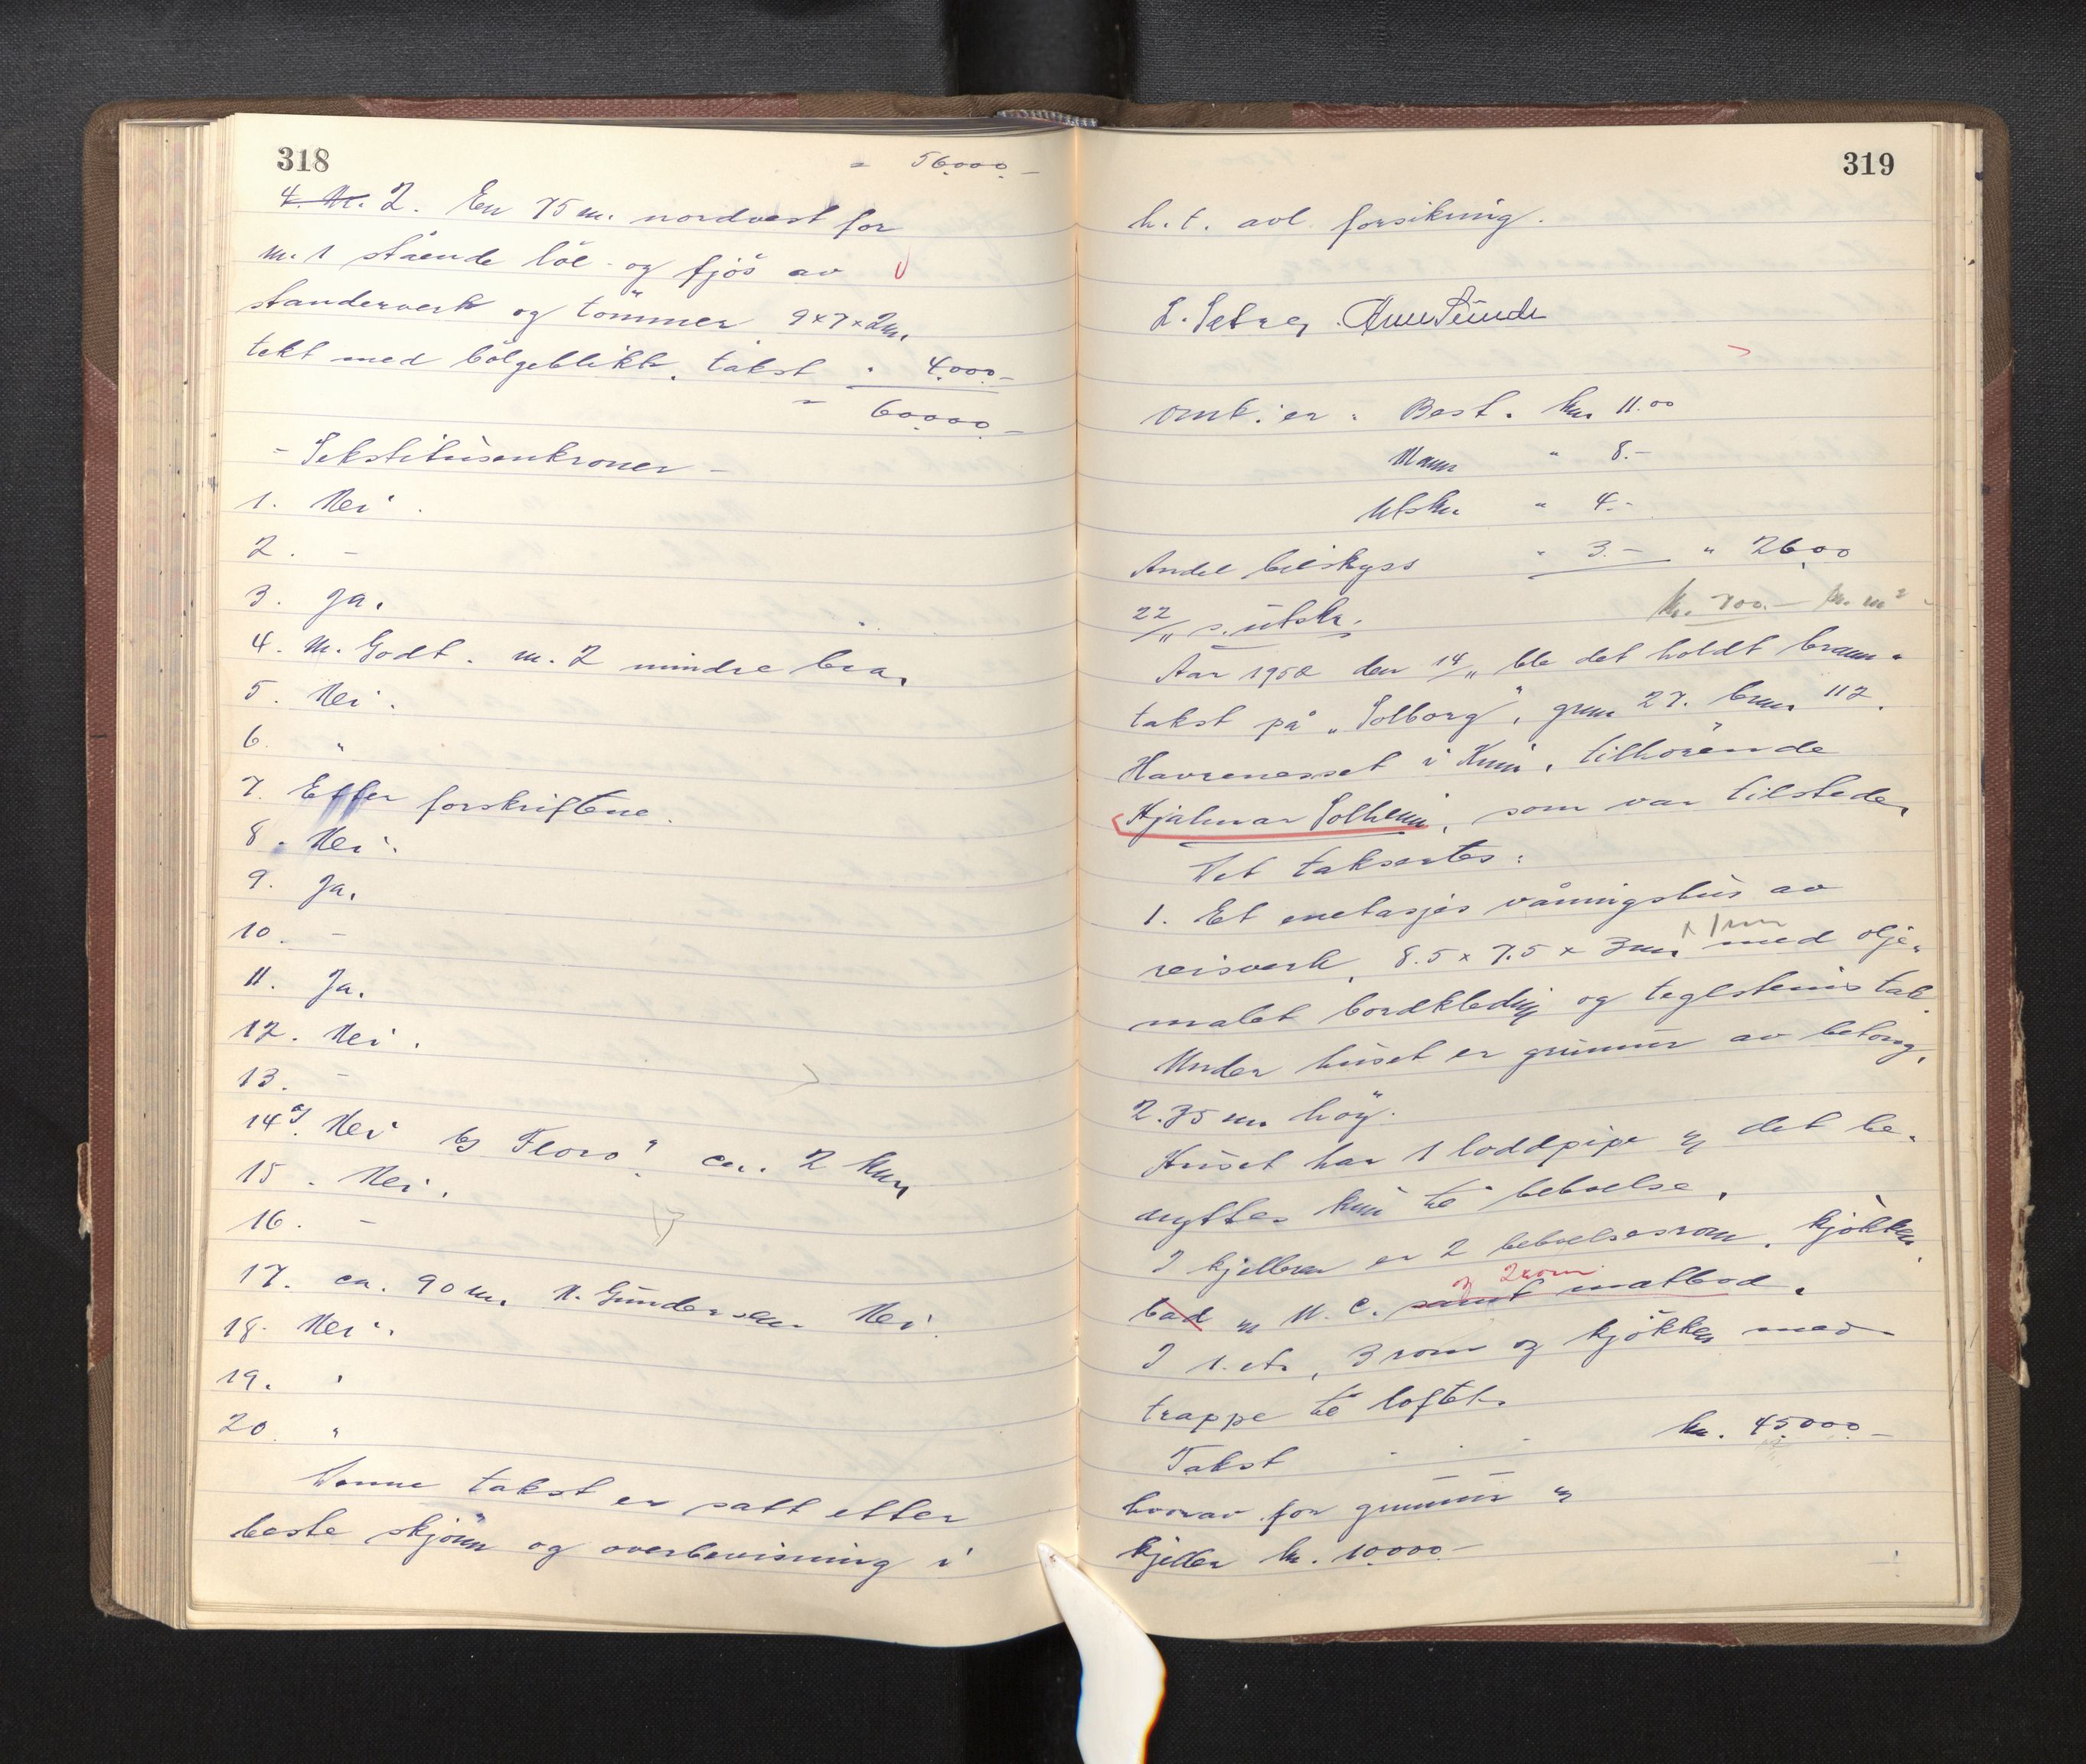 318
= 56.000.-
4. Nr. 2. En 75 m. nordvest for
nr. 1 stående löe- og fjös av
standerverk og tömmer 9x7x2m.
tekt med bölgeblikk. takst " 4.000.-
= 60.000.-
- Sekstitusenkroner -
1. Nei.
2. -
3. Ja.
4. Nr. Godt. nr. 2 mindre bra.
5. Nei.
6. "
7. Efter forskriftene.
8. Nei.
9. Ja.
10. -
11. Ja.
12. Nei.
13. -
14 a). Nei b) Florö. ca. 2 km
15. Nei.
16. -
17. ca. 90 m. N. Gundersen Nei.
18. Nei.
19. "
20 "
Denne takst er satt etter
beste skjönn og overbevisning i
319
h. t. avl. forsikring.
L. Sætre
Omk. er: Best. kr. 11.00
Mann " 8.-
Utskr. " 4.-
Andel bilskyss " 3.- " 26.00
22/11 s. utskr.
kr. 700.- pr. m²
Aar 1952 den 14/11 ble det holdt brann-
takst på "Solborg", gnr. 27. bnr. 112.
Havrenesset i Kinn, tilhörende
Hjalmar Solheim, som var tilstede.
Det takseres:
1. Et enetasjes våningshus av
reisverk, 8.5 x 7.5 x 3 m. x 1 m med olje-
malet bordkledning og teglsteinstak.
Under huset er grunnmur av betong,
2.35 m. höy.
Huset har 1 loddpipe og det be-
nyttes kun til beboelse.
I kjelleren er 2 beboelsesrom, kjökken,
og 2 rom
bad og W. C. samt matbod.
I 1. etg, 3 rom og kjökken med
trappe til loftet.
Takst kr. 45.000.-
hvorav for grunnmur og
kjeller kr. 10.000.-